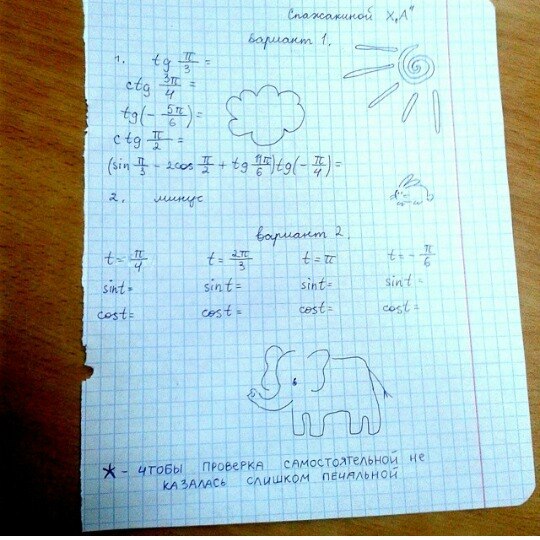 Спажакиной Х„А"
вариант 1.
1. tg π/3 =
ctg 3π/4 =
tg(- 5π/6) =
ctg π/2 =
(sin π/3 - 2cos π/2 + tg 11π/6) tg(- π/4) =
2. минус
вариант 2.
t = π/4 t = 2π/3 t = π t = - π/6
sint = sint = sint = sint =
cost = cost = cost = cost =
* - чтобы проверка самостоятельной не
казалась слишком печальной